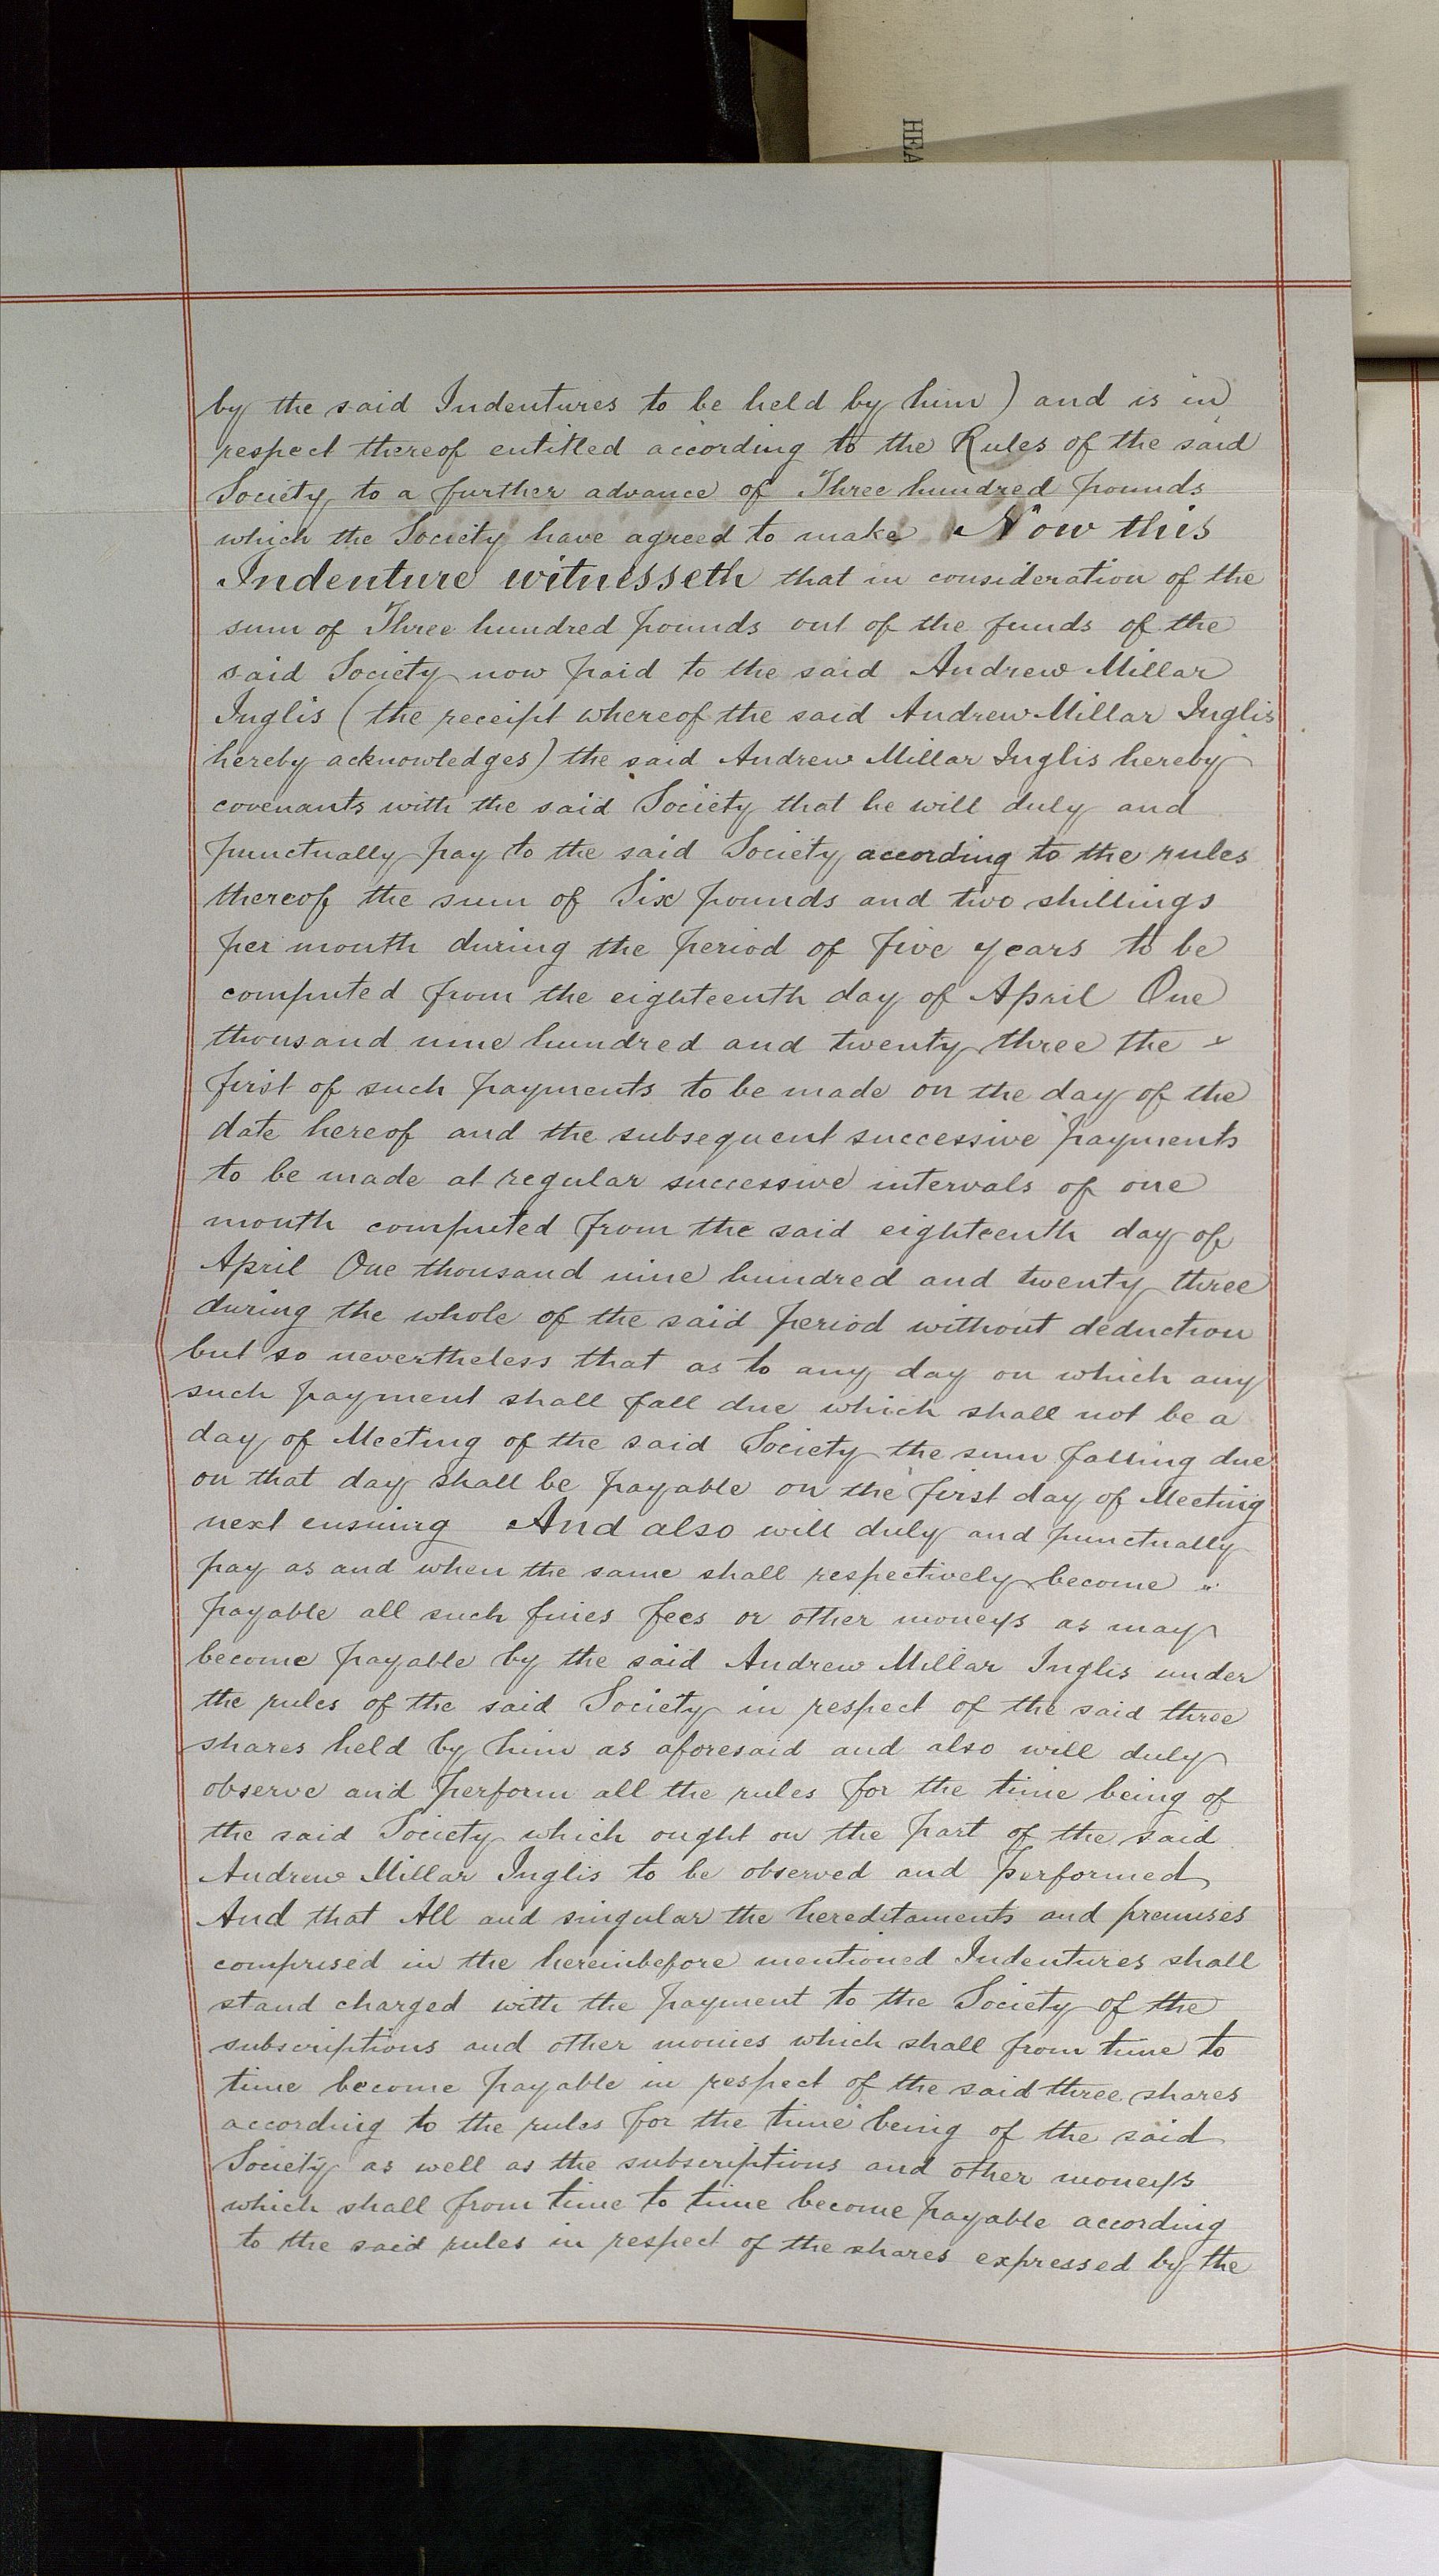 HEA
by the said Indentures to be held by him) and is in
respect thereof entitled according to the Rules of the said
Society to a further advance of Three hundred pounds
which the Society have agreed to make Now this
Indenture witnesseth that in consideration of the
sum of Three hundred pounds out of the funds of the
said Society now paid to the said Andrew Millar
Inglis (the receipt whereof the said Andrew Millar Inglis
hereby acknowledges) the said Andrew Millar Inglis hereby
covenants with the said Society that he will duly and
punctually pay to the said Society according to the rules
thereof the sum of Six pounds and two shillings
per month during the period of five years to be
computed from the eighteenth day of April One
thousand nine hundred and twenty three the
first of such payments to be made on the day of the
date hereof and the subsequent successive payments
to be made at regular successive intervals of one
month computed from the said eighteenth day of
April One thousand nine hundred and twenty three
during the whole of the said period without deduction
but so nevertheless that as to any day on which any
such payment shall fall due which shall not be a
day of Meeting of the said Society the sum falling due
on that day shall be payable on the first day of Meeting
next ensuing And also will duly and punctually
pay as and when the same shall respectively become
payable all such fines fees or other moneys as may
become payable by the said Andrew Millar Inglis under
the rules of the said Society in respect of the said three
shares held by him as aforesaid and also will duly
observe and perform all the rules for the time being of
the said Society which ought on the part of the said
Andrew Millar Inglis to be observed and performed
And that All and singular the hereditaments and premises
comprised in the hereinbefore mentioned Indentures shall
stand charged with the payment to the Society of the
subscriptions and other monies which shall from time to
time become payable in respect of the said three shares
according to the rules for the time being of the said
Society as well as the subscriptions and other moneys
which shall from time to time become payable according
to the said rules in respect of the shares expressed by the